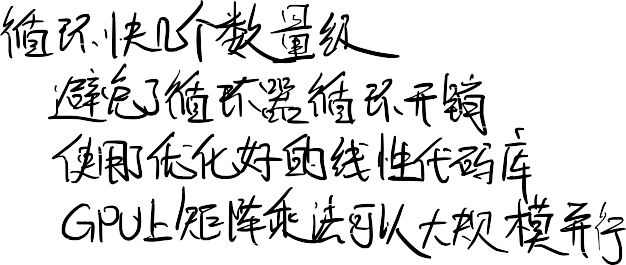 循环快几个数量级
避免了循环器循环开销
使用了优化好的线性代码库
GPU上矩阵乘法可以大规模并行